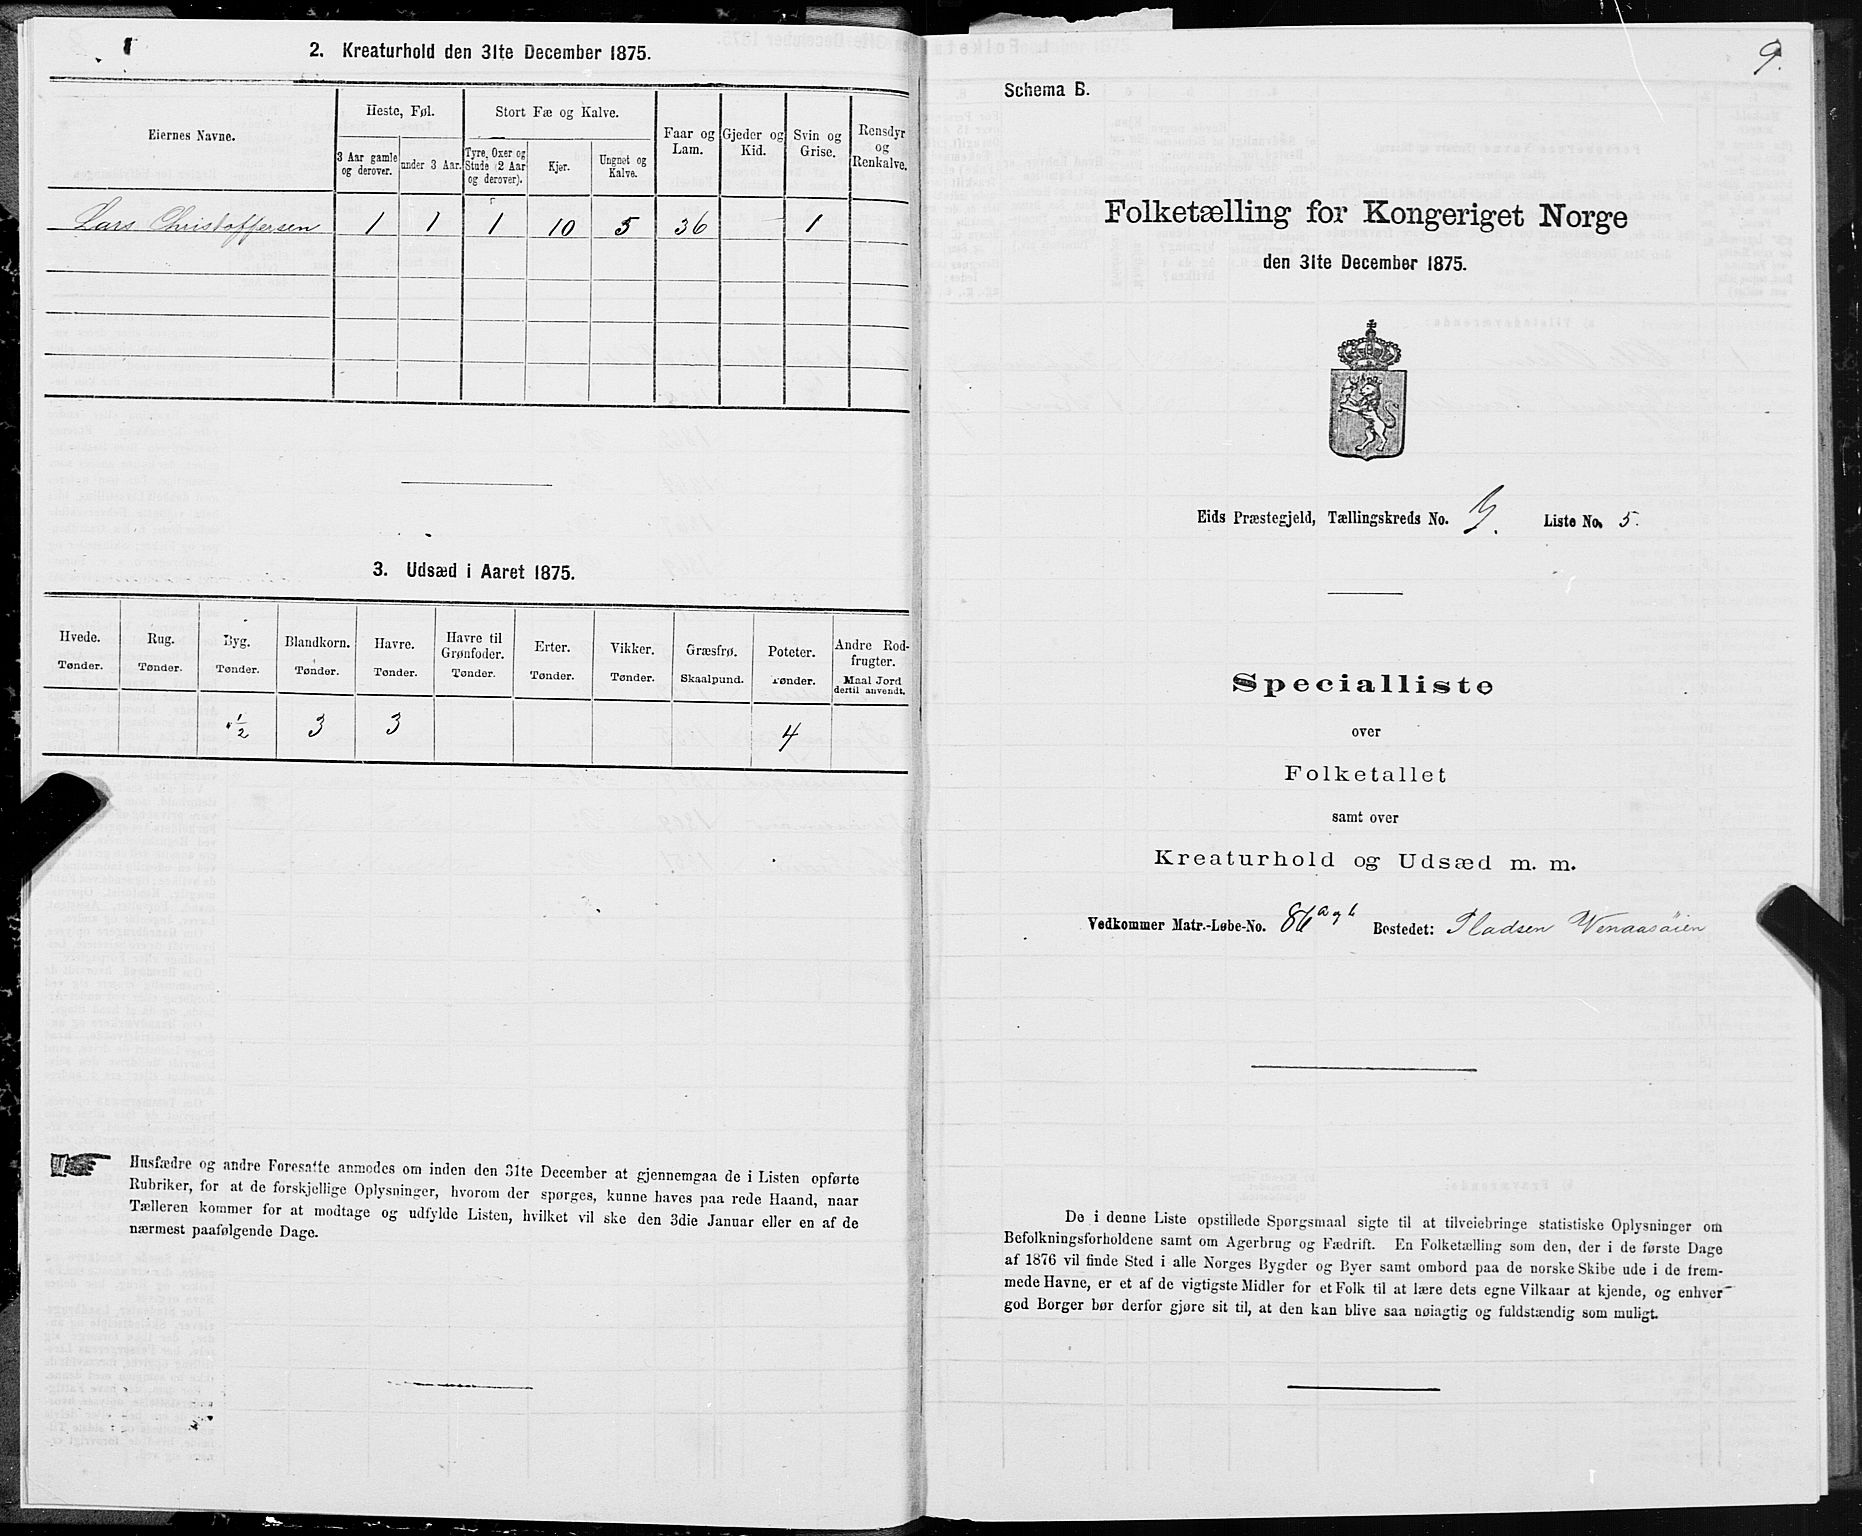 2. Kreaturhold den 31te December 1875.
Eiernes Navne.
Heste, Føl.
Stort Fæ og Kalve.
Faar og
Lam.
Gjeder og
Kid.
Svin og
Grise.
Rensdyr
og
Renkalve.
3 Aar gamle
og derover.
under 3 Aar.
Tyre, Oxer og
Stude (2 Aar
og derover).
Kjør.
Ungnet og
Kalve.
Lars Christoffersen 1 1 1 10 5 36 1
3. Udsæd i Aaret 1875.
Hvede.
Tønder.
Rug.
Tønder.
Byg.
Tønder.
Blandkorn.
Tønder.
Havre.
Tønder.
Havre til
Grønfoder.
Tønder.
Erter.
Tønder.
Vikker.
Tønder.
Græsfrø.
Skaalpund.
Poteter.
Tønder.
Andre Rod-
frugter.
Maal Jord
dertil anvendt.
1/2 3 3 4
Husfædre og andre Foresatte anmodes om inden den 31te December at gjennemgaa de i Listen opførte
Rubriker, for at de forskjellige Oplysninger, hvorom der spørges, kunne haves paa rede Haand, naar
Tælleren kommer for at modtage og udfylde Listen, hvilket vil ske den 3die Januar eller en af de
nærmest paafølgende Dage.
9.
Schema B.
Folketælling for Kongeriget Norge
den 31te December 1875.
Eids Præstegjeld, Tællingskreds No. Liste No. 5.
Specialliste
over
Folketallet
samt over
Kreaturhold og Udsæd m. m.
Vedkommer Matr.-Løbe-No. 86 a og b Bostedet: Pladsen Venaasøien
De i denne Liste opstillede Spørgsmaal sigte til at tilveiebringe statistiske Oplysninger om
Befolkningsforholdene samt om Agerbrug og Fædrift. En Folketælling som den, der i de første Dage
af 1876 vil finde Sted i alle Norges Bygder og Byer samt ombord paa de norske Skibe ude i de frem-
mede Havne, er et af de vigtigste Midler for et Folk til at lære dets egne Vilkaar at kjende, og enhver
god Borger bør derfor gjøre sit til, at den kan blive saa nøiagtig og fuldstændig som muligt.